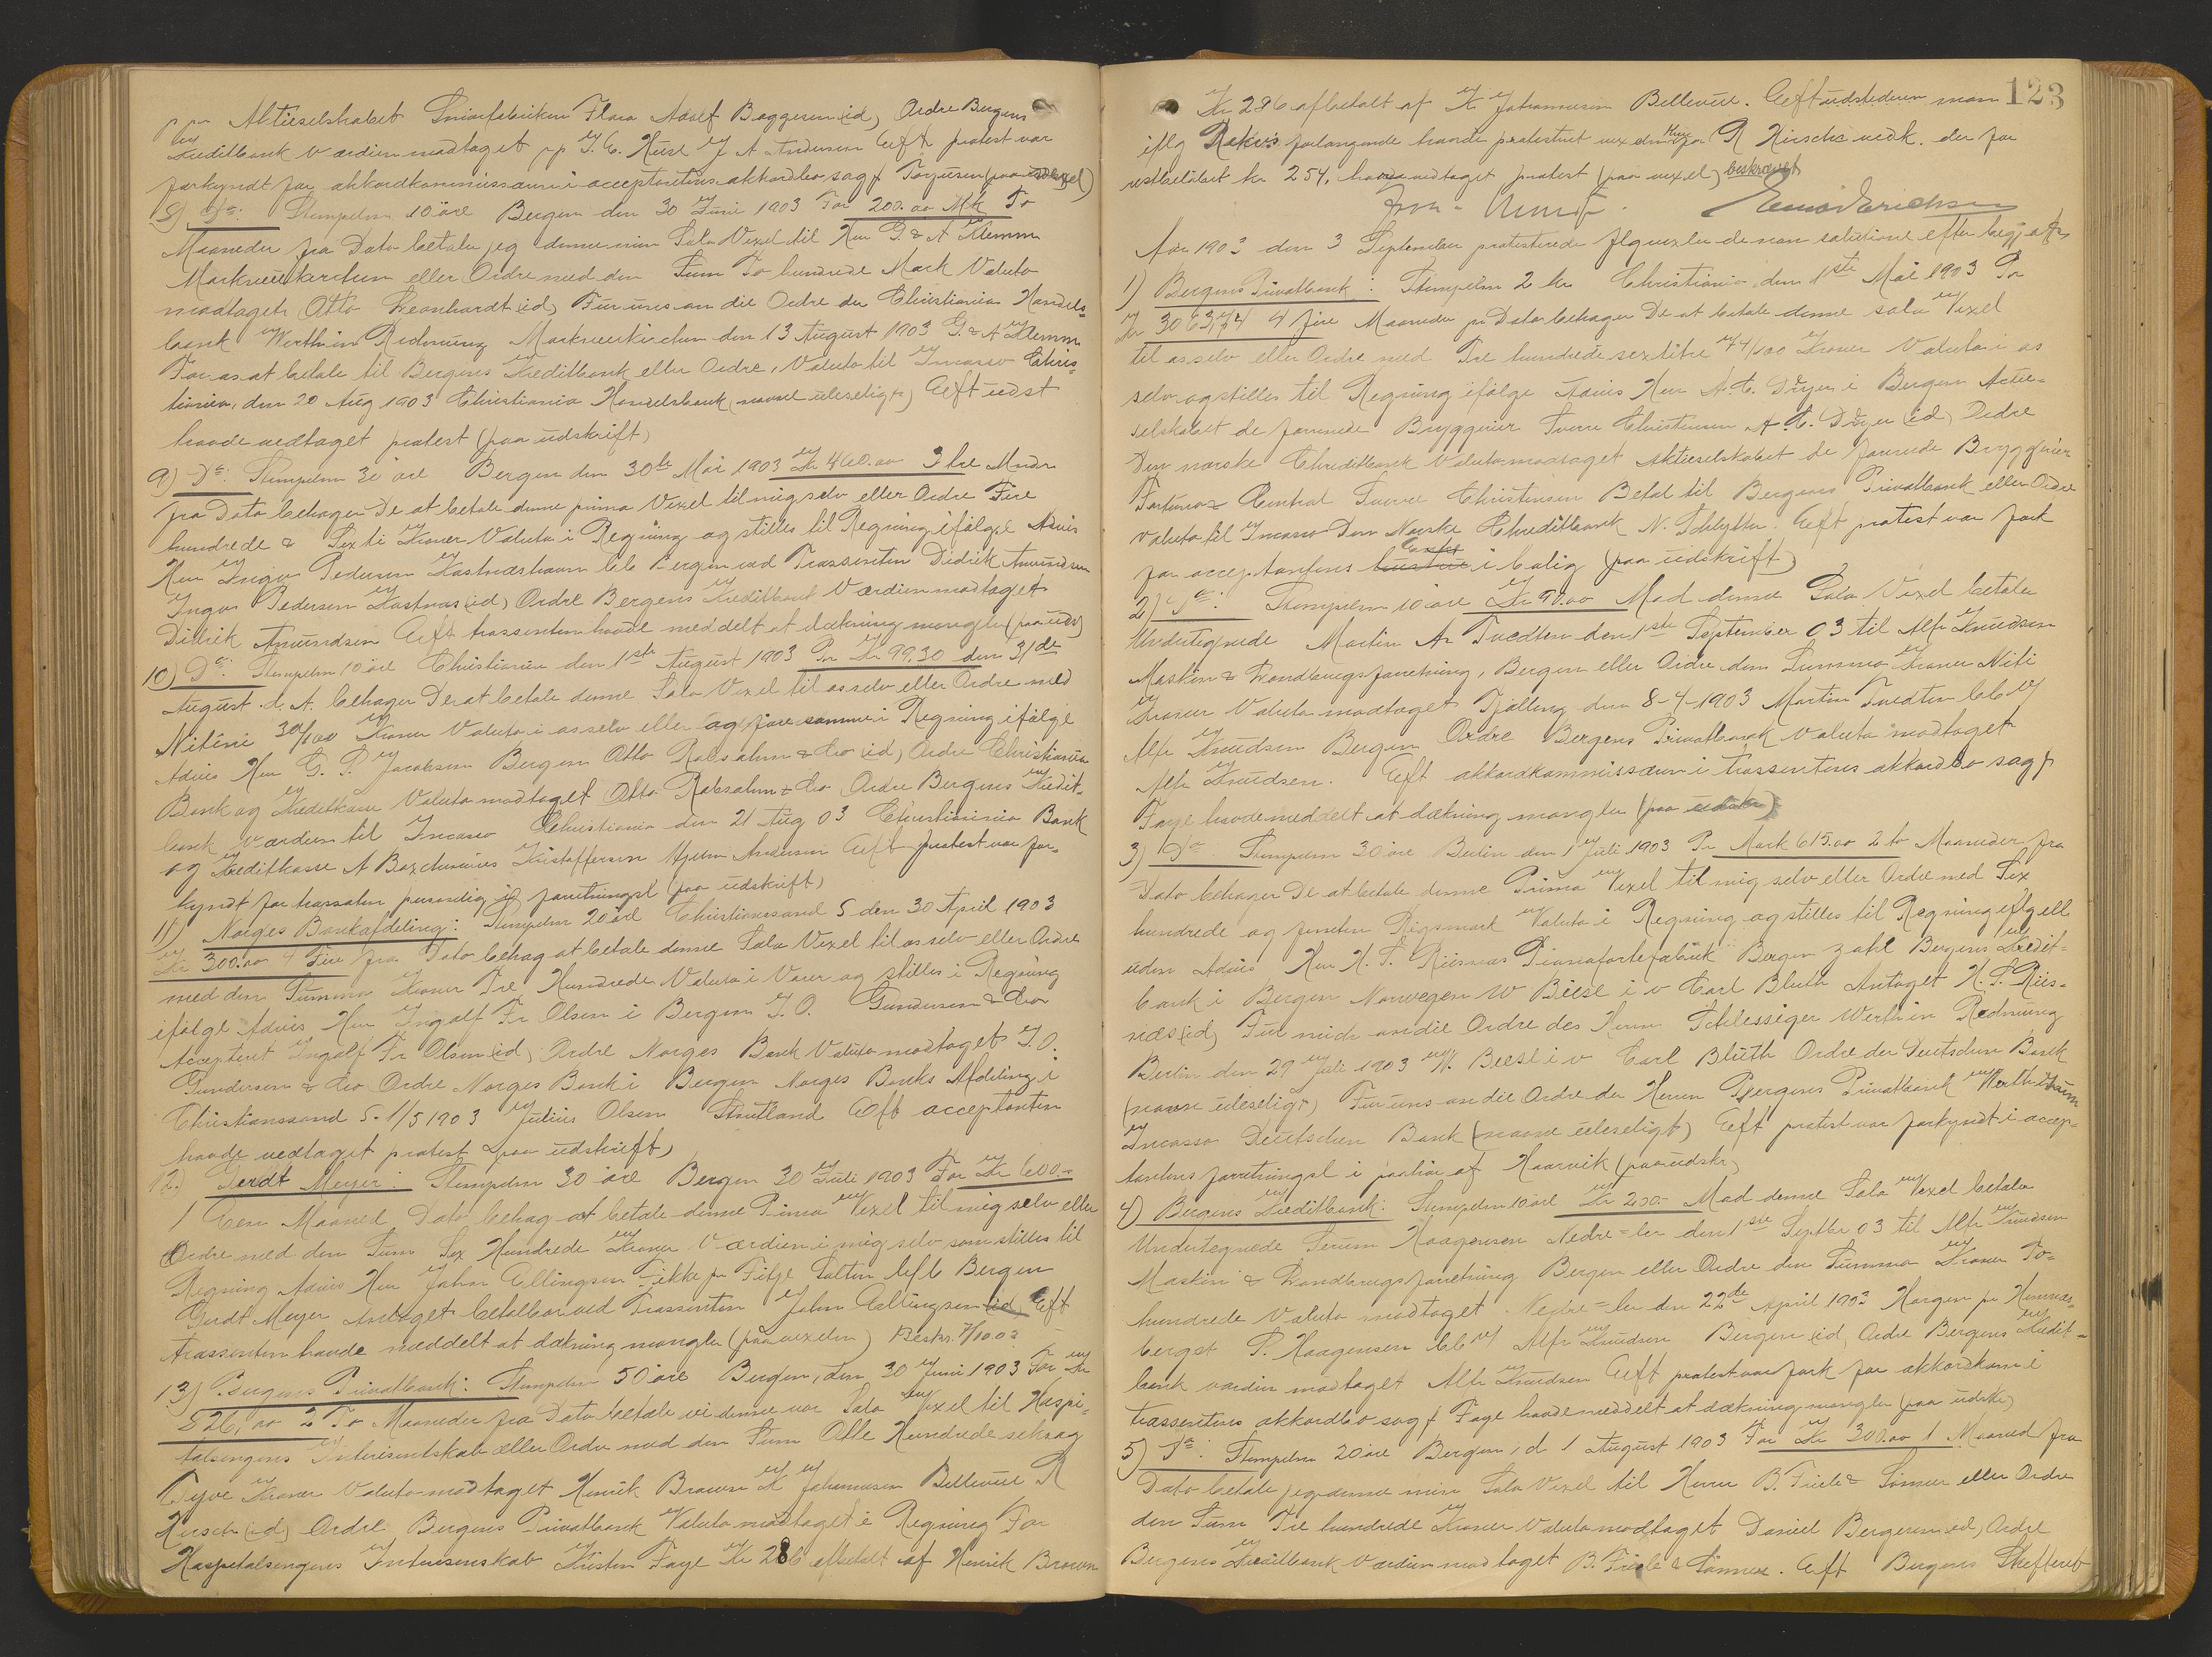 p pr Aktieselskabet Smørfabriken Flora Adolf Baggesen (id) Ordre Bergens
Kreditbank værdien modtaget pp J. C. Huse J A Andersen Eft protest var
forkyndt for akkordkommissæren i acceptantens akkordbo sagf Torgusen (paa vexel)
8) Do: Stempelm 10 øre Bergen den 30 Juni 1903 For 200.00 Mk To
Maaneder fra Dato betaler jeg denne min Sola Vexel til Herr G. & A Klemm
Markneukirchen eller Ordre med den Sum To hundrede Mark Valuta
modtaget Otto Leonhardt (id) Für uns an die Ordre der Christiania Handels-
bank Werth in Rechnung Markneukirchen den 13 August 1903 G. & A Klemm
For os at betale til Bergens Kreditbank eller Ordre, Valuta til Incasso Chris-
tiania, den 20 Aug 1903 Christiania Handelsbank (navnet uleseligt) Eft udst
havde vedtaget protest (paa udskrift)
9) Do: Stempelm 30 øre Bergen den 30te Mai 1903 Kr 460.00 3 tre Mndr
fra Dato behager De at betale denne prima Vexel til mig selv eller Ordre Fire
hundrede & Sexti Kroner Valuta i Regning og stilles til Regning ifølge Advis
Herr Ingvar Pedersen Kastnæshavn bb Bergen ved Trassenten Didrik Amundsen
Ingvar Pedersen Kastnæs (id) Ordre Bergens Kreditbank Værdien modtaget
Didrik Amundsen Eft trassenten havde meddelt at dækning mangler (paa uds)
10) Do: Stempelm 10 øre Christiania den 1ste August 1903 Pr Kr 99,30 den 31de
August d. A. behager De at betale denne Sola Vexel til os selv eller Ordre med
Nitini 30/100 Kroner Valuta i os selv eller og føre samme i Regning ifølge
Advis Herr G. P. Jacobsen Bergen Otto Robsahm & Co (id) Ordre Christiania
Bank og Kreditkasse Valuta modtaget Otto Robsahm & Co Ordre Bergens Kredit-
bank Værdien til Incasso Christiania den 21 Aug 03 Christiania Bank
og Kreditkasse A Kristoffersen Hjalm Andersen Eft protest var for-
kyndt for trassaten personlig i forretningsl (paa udskrift)
11) Norges Bankafdeling: Stempelm 20 øre Christianssand S den 30 April 1903
Kr 300.00 4 Fire fra Dato behag at betale denne Sola Vexel til os selv eller Ordre
med den Summa Kroner Tre Hundrede Valuta i Varer og stilles i Regning
ifølge Advis Herr Ingolf Fr Olsen i Bergen J. O. Gundersen & Co
Accepteret Ingolf Fr Olsen (id) Ordre Norges Bank Valuta modtaget J. O.
Gundersen & Co Ordre Norges Bank i Bergen Norges Banks Afdeling i
Christianssand S. 1/5 1903 Julius Olsen Eft acceptanten
havde vedtaget protest (paa udskrift)
12) Gerdt Meyer: Stempelm 30 øre Bergen 30 Juli 1903 For Kr 600.-
1 Een Maaned Dato behag at betale denne Prima Vexel til mig selv eller
Ordre med den Sum Sex Hundrede Kroner Værdien i mig selv som stilles til
Regning Advis Herr John Ellingsen Fikke pr Fitje Salten bb Bergen
Gerdt Meyer Antaget betalbar ved Trassenten John Ellingsen (id) Eft
trassenten havde meddelt at dækning mangler (paa vexelen) Beskr. 7/10 03
13) Bergens Privatbank: Stempelm 50 øre Bergen, den 30 Juni 1903 For Kr
826,00 2 To Maaneder fra Dato betaler vi denne vor Sola Vexel til Hospi-
talsengens Interesentskab eller Ordre med den Sum Otte Hundrede seksog
Tyve Kroner Valuta modtaget Henrik Brown K Johannesen Bellevue R
Hirsch (id) Ordre Bergens Privatbank Valuta modtaget i Regning For
Hospitalsengens Interesenskab Kristen Faye Kr 286 afbetalt af Henrik Brown
123
Kr 286 afbetalt af K Johannesen Bellevue. Eft udstederen man
iflg forlangende havde protestret vexelen Herr R Hirsch's vedk. der for
restbeløbet kr 254, havde vedtaget protest (paa vexel) beskrevet
Aar 1903 den 3 September protesterede flg vexler de non solutione efter begj af
1) Bergens Privatbank: Stempelm 2 kr Christiania den 1ste Mai 1903 Pr
Kr 3063,74 4 fire Maaneder pr Dato behager De at betale denne sola Vexel
til os selv eller Ordre med Tre hundrede sextitre 74/100 Kroner Valuta i os
selv og stilles til Regning ifølge Advis Herr A. C. Dreyer i Bergen Actie-
selskabet de forenede Bryggerier Sverre Christensen A. C. Dreyer (id) Ordre
Den norske Chreditbank Valuta modtaget Aktieselskabet de forenede Bryggerier
Fortuna Central Sverre Christensen Betal til Bergens Privatbank eller Ordre
Valuta til Incasso Den Norske Chreditbank N. Schlytter. Eft protest var fork
for acceptantens i bolig (paa udskrift)
2) Do: Stempelm 10 øre Kr 90.00 Mod denne Sola Vexel betaler
Undertegnede Martin A Tvedten den 1ste September 03 til Alfr Knudsen
Maskin & Landbrugsforretning, Bergen eller Ordre den Summa Kroner Niti
Kroner Valuta modtaget den 8-4-1903 Martin Tvedten bb v/
Alfr Knudsen Bergen Ordre Bergens Privatbank Valuta modtaget
Alfr Knudsen. Eft akkordkommissæren i trassentens akkordbo sagf
Faye havde meddelt at dækning mangler (paa udskr)
3) Do Stempelm 30 øre Berlin den 1 Juli 1903 Pr Mark 615.00 2 to Maaneder fra
Dato behager De at betale denne Prima Vexel til mig selv eller Ordre med Sex
hundrede og femten Rigsmark Valuta i Regning og stilles til Regning iflg ell
uden Advis Herr H. S. Riisnæs Pianofortefabrik Bergen zahl Bergens Kredit-
bank i Bergen Norwegen W Biese i v Carl Bluth Antaget H. S. Riis-
næs (id) Für mich an die Ordre des Herrn Schlessiger Werth in Rechnung
Berlin den 29 Juli 1903 W. Biese i v Carl Blüth Ordre der Deutschen Bank
(navne uleseligt) Für uns an die Ordre der Herren Bergens Privatbank Werth zum
Incasso Deutschen Bank (navne uleseligt) Eft protest var forkyndt i accep-
tantens forretningsl i paahør af Haarvik (paa udskr)
4) Bergens Kreditbank: Stempelm 10 øre Kr 200.- Mod denne Sola Vexel betaler
Undertegnede Haagensen Nedre=ler den 1ste Septbr 03 til Alfr Knudsen
Maskin & Landbrugsforretning Bergen eller Ordre den Summa Kroner To-
hundrede Valuta modtaget. Nedre=ler den 22de April 1903
S. Haagensen bb v/ Alfr Knudsen Bergen (id) Ordre Bergens Kredit-
bank værdien modtaget Alfr Knudsen Eft protest var fork for akkordkom i
trassentens akkordbo sagf Faye havde meddelt at dækning mangler (paa udskr)
5) Do: Stempelm 20 øre Bergen, d 1 August 1903 For Kr 300.00 1 Maaned fra
Dato betaler jeg denne min Sola Vexel til Herrer B. Friele & Sønner eller Ordre
den Sum Tre hundrede Kroner Valuta modtaget Daniel Bergersen (id) Ordre
Bergens Kreditbank Værdien modtaget B. Friele & Sønner. Eft Bergens Skifteret